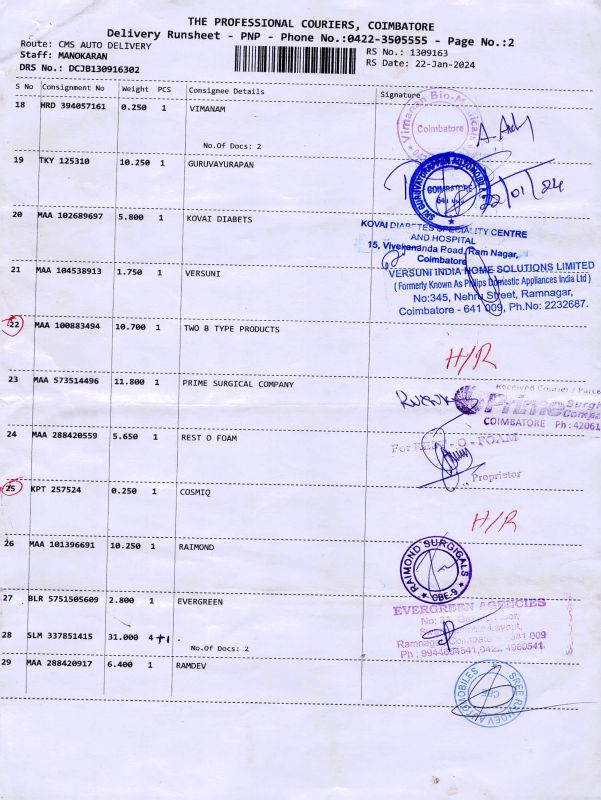 THE PROFESSIONAL COURIERS, COIMBATORE
Delivery Runsheet - PNP - Phone No.:0422-3505555 - Page No.:2
Route: CMS AUTO DELIVERY
RS No.: 1309163
Staff: MANOKARAN
RS Date: 22-Jan-2024
DRS No.: DCJB130916302
S No Consignment No Weight PCS Consignee Details Signature
18 HRD 394057161 0.250 1 VIMANAM
Coimbatore
No.Of Docs: 2
19 TKY 125310 10.250 1 GURUVAYURAPAN
COIMBATORE
/01/24
20 MAA 102689697 5.800 1 KOVAI DIABETS
KOVAI DIABETES SPECIALITY CENTRE
AND HOSPITAL
15, Vivekananda Road, Ram Nagar,
Coimbatore
21 MAA 104538913 1.750 1 VERSUNI
VERSUNI INDIA HOME SOLUTIONS LIMITED
( Formerly Known As Philips Domestic Appliances India Ltd )
No:345, Nehru Street, Ramnagar,
Coimbatore - 641 009, Ph.No: 2232687.
22 MAA 100883494 10.700 1 TWO B TYPE PRODUCTS
H/R
23 MAA 573514496 11.800 1 PRIME SURGICAL COMPANY
Received Courier / Parce
Prime Surgi
Compa
COIMBATORE Ph : 42061
24 MAA 288420559 5.650 1 REST O FOAM
For REST - O - FOAM
Proprietor
25 KPT 257524 0.250 1 COSMIQ
H/R
26 MAA 101396691 10.250 1 RAIMOND
RAIMOND SURGICALS
CBE-9
27 BLR 5751505609 2.800 1 EVERGREEN
EVERGREEN AGENCIES
Layout,
Ramnagar, Coimbatore - 641 009
28 SLM 337851415 31.000 4 +1 .
No.Of Docs: 2
29 MAA 288420917 6.400 1 RAMDEV
SREE RAMDEV AUTOMOBILES
CBE